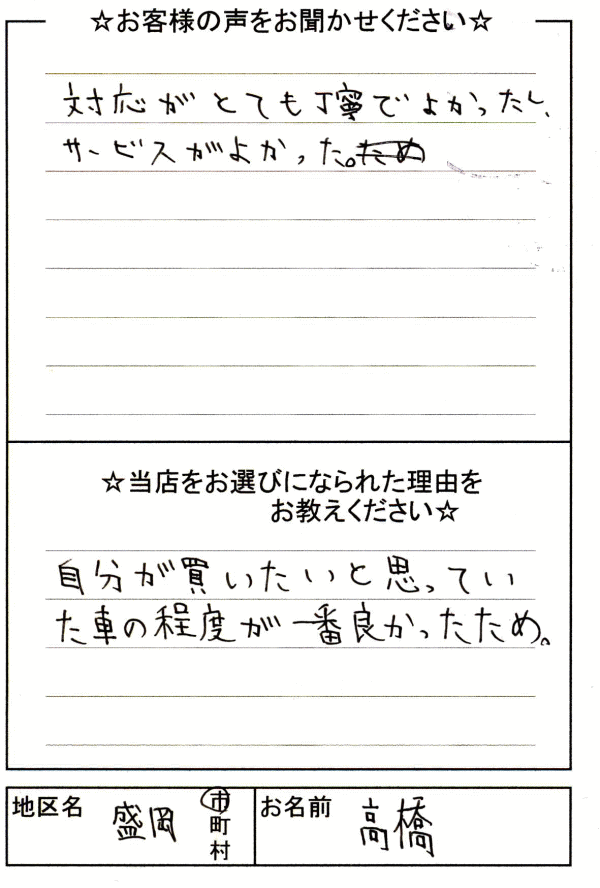 ☆お客様の声をお聞かせください☆
対応がとても丁寧でよかったし、
サービスがよかった。
☆当店をお選びになられた理由を
お教えください☆
自分が買いたいと思ってい
た車の程度が一番良かったため。
地区名 盛岡 市町村 お名前 高橋